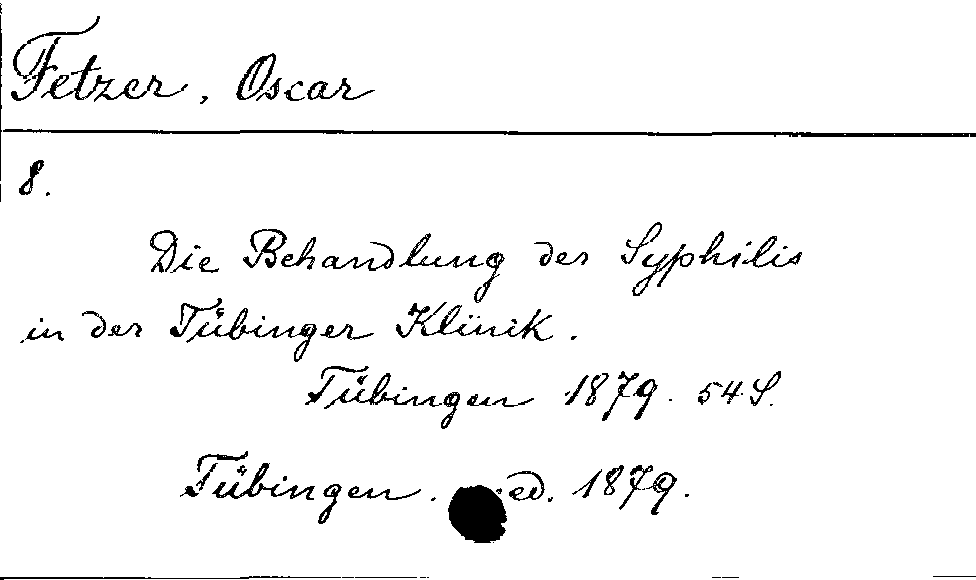 Fetzer, Oscar
8.
Die Behandlung der Syphilis
in der Tübinger Klinik.
Tübingen 1879. 54 S.
Tübingen. 1879.